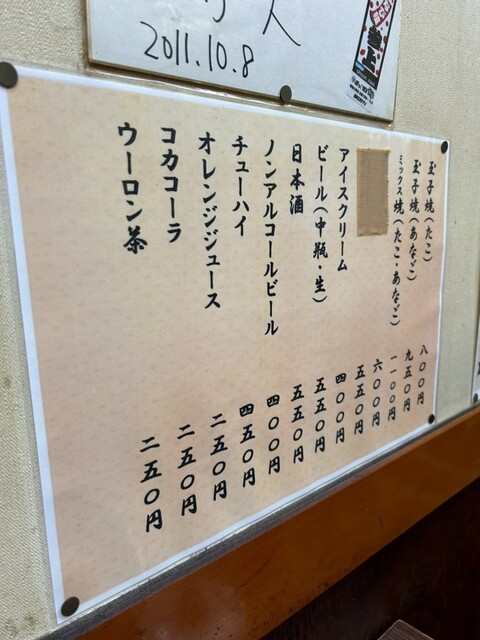 人
2011.10.8
参上
玉子焼(たこ) 八〇〇円
玉子焼(あなご) 九五〇円
ミックス焼(たこ・あなご) 一一〇〇円
六〇〇円
五五〇円
アイスクリーム 四〇〇円
ビール(中瓶・生) 五五〇円
日本酒 五五〇円
ノンアルコールビール 四〇〇円
チューハイ 四五〇円
オレンジジュース 二五〇円
コカコーラ 二五〇円
ウーロン茶 二五〇円